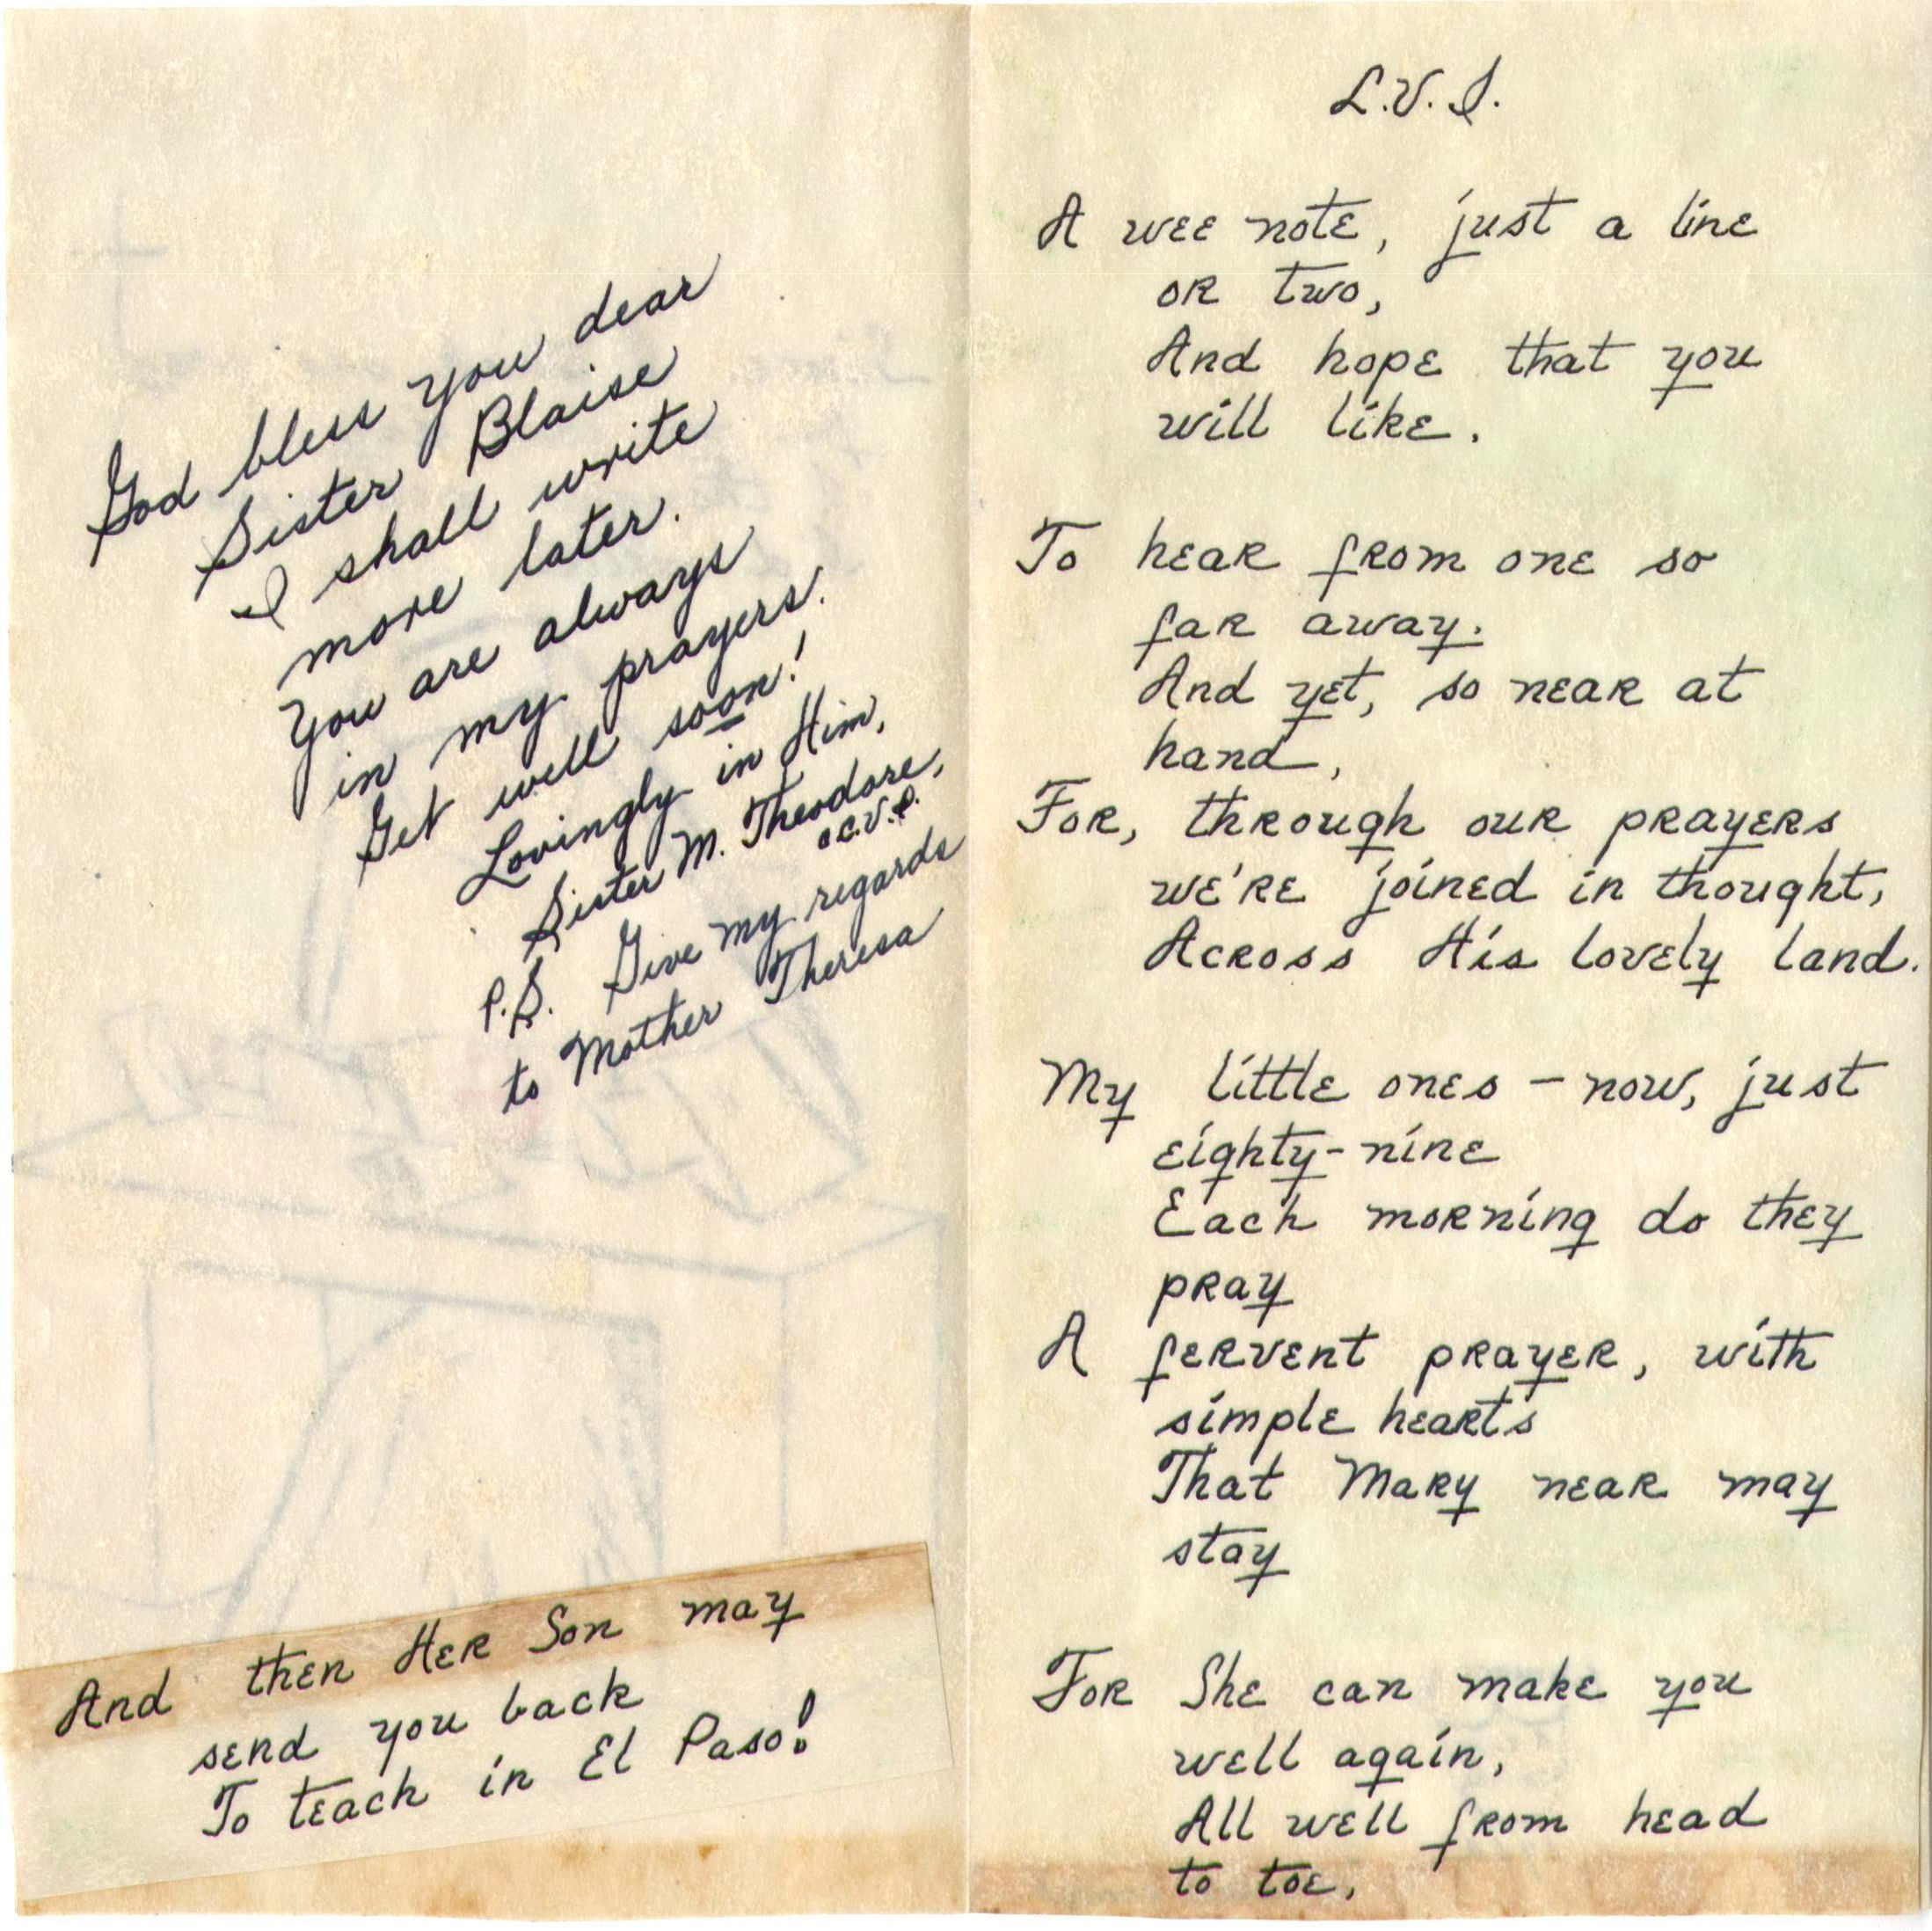 God bless you dear
Sister Blaise
I shall write
more later.
You are always
in my prayers.
Get well soon!
Lovingly in Him,
Sister M. Theodore,
P.S. Give my regards
to Mother Theresa
And then Her Son may
send you back
To teach in El Paso!
L.V.I.
A wee note, just a line
or two,
And hope that you
will like.
To hear from one so
far away.
And yet, so near at
hand,
For, through our prayers
we're joined in thought,
Across His lovely land.
My little ones - now, just
eighty-nine
Each morning do they
pray
A fervent prayer, with
simple hearts
That Mary near may
stay
For She can make you
well again,
All well from head
to toe,